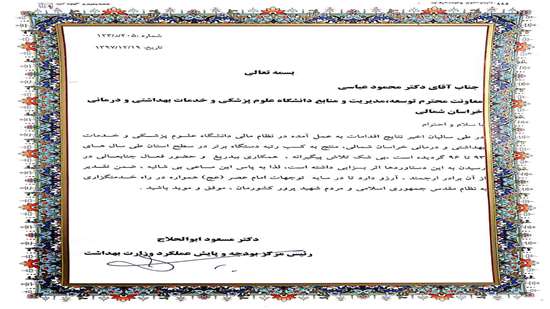 شماره: ۱۲۳/د/۲۰۵۰
تاریخ: ۱۳۹۷/۱۲/۱۹
بسمه تعالی
جناب آقای دکتر محمود عباسی
معاونت محترم توسعه،مدیریت و منابع دانشگاه علوم پزشکی و خدمات بهداشتی و درمانی
خراسان شمالی
با سلام و احترام
در طی سالیان اخیر نتایج اقدامات به عمل آمده در نظام مالی دانشگاه علـوم پزشـکی و خـدمات
بهداشتی و درمانی خراسان شمالی، منتج به کسب رتبه دستگاه برتر در سطح استان طی سال هـای
۹۳ تا ۹۶ گردیده است .بی شک تلاش پیگیرانه ، همکاری بیدریغ و حضور فعـال جنابعـالی در
رسیدن به این دستاوردها اثر بسزایی داشته است، لذا به پاس این مساعی بی شائبه ، ضمن تقـدیر
از آن برادر ارجمند ، آرزو دارد تا در سایه توجهات امام عصر (عج) همواره در راه خـدمتگزاری
به نظام مقدس جمهوری اسلامی و مردم شهید پرور کشورمان ، موفق و موید باشید .
دکتر مسعود ابوالحلاج
رئیس مرکز بودجه و پایش عملکرد وزارت بهداشت